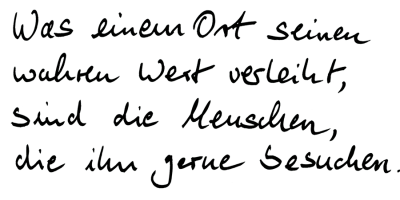 Was einem Ort seinen
wahren Wert verleiht,
sind die Menschen,
die ihn gerne besuchen.